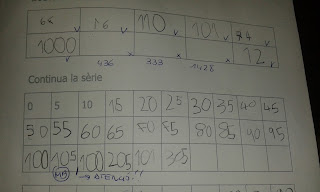 66 16 110 101 84
1000 12
436 333 1428
Continua la sèrie
0 5 10 15 20 25 30 35 40 45
50 55 60 65 80 85 80 85 90 95
100 105 100 205 101 305